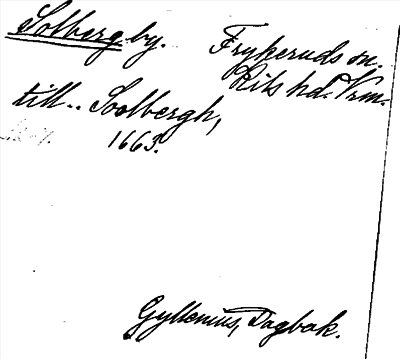 Solbergby. Frykeruds sn.
Kils hd. Vrm.
till.. Soolbergh,
1663.
Gyllenius, Dagbok.